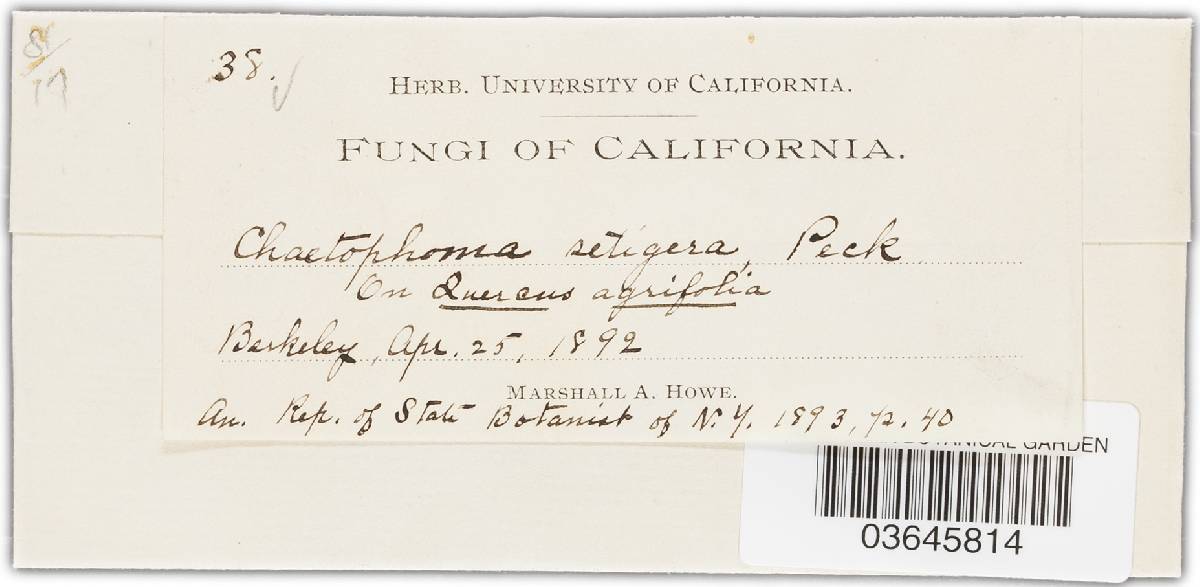 38.
HERB. UNIVERSITY OF CALIFORNIA.
FUNGI OF CALIFORNIA.
Chaetophoma setigera, Peck
On Quercus agrifolia
Berkeley, Apr. 25, 1892
MARSHALL A. HOWE.
An. Rep. of State Botanist of N.Y. 1893, p. 40
BOTANICAL GARDEN
03645814